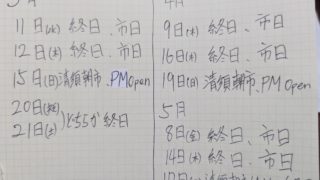 11日(水) 終日、市日
12日(木) 終日、市日
15日(日) 清須朝市、PMOpen
20日(祝)
21日(土)
どちらか終日
9日(木) 終日、市日
16日(木) 終日、市日
19日(日) 清須朝市、PMOpen
5月
8日(金) 終日、市日
14日(木) 終日、市日